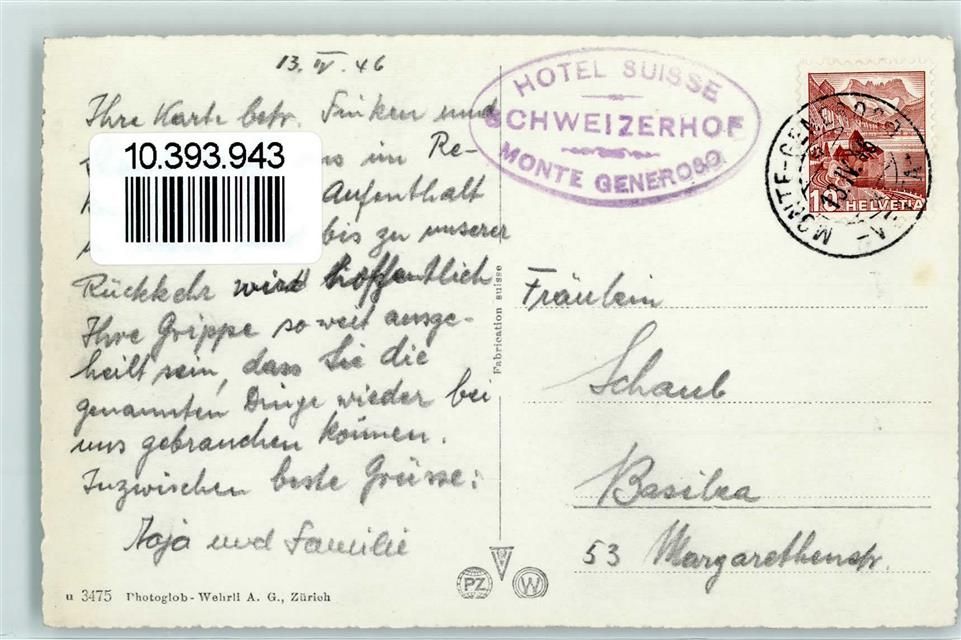 13. IV. 46
Ihre Karte betr. Finken und
im Re-
Aufenthalt
bis zu unserer
Rückkehr wird hoffentlich
Ihre Grippe so weit ausge-
heilt sein, dass Sie die
genannten Dinge wieder bei
uns gebrauchen können.
Inzwischen beste Grüsse:
und Familie
10.393.943
HOTEL SUISSE
SCHWEIZERHOF
MONTE GENEROSO
MONTE-GENEROSO
13.IV.46
HELVETIA
Fabrication suisse
Fräulein
Schaub
Basilea
53 Margarethenstr.
PZ
W
u 3475 Photoglob-Wehrli A. G., Zürich